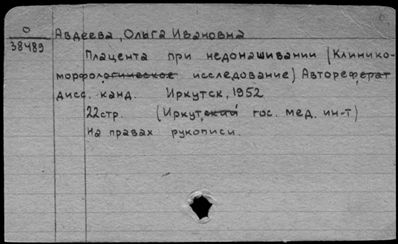 О
38489
Авдеева, Ольга Ивановна
Плацента при недонашивании (Клинико-
морфологическое исследование) Автореферат
дисс. канд. Иркутск, 1952
22стр. (Иркутский гос. мед. ин-т)
На правах рукописи.